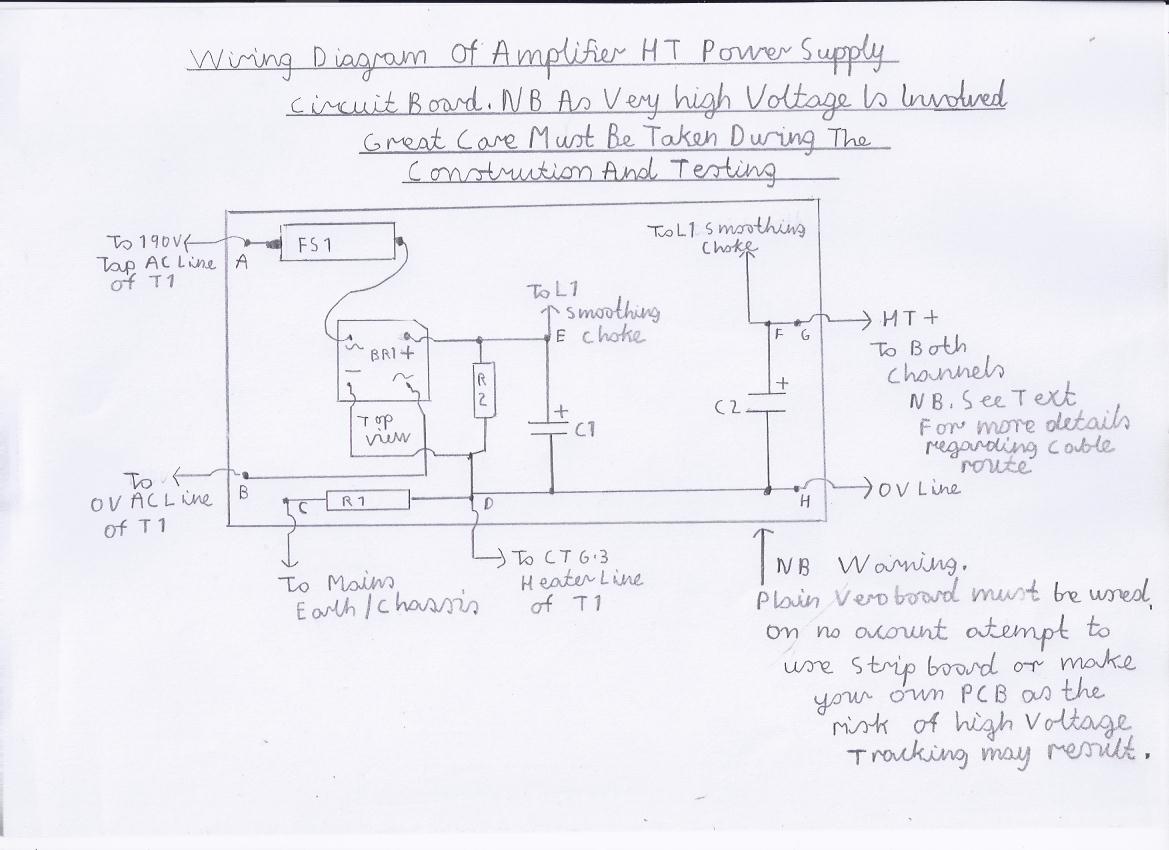 Wiring Diagram Of Amplifier HT Power Supply
Circuit Board. NB As Very high Voltage Is Involved
Great Care Must Be Taken During The
Constrution And Testing
To 190V
Tap AC Line
of T1
A
FS1
To L1 smoothing
choke
To L1
smoothing
choke
E
F G
HT +
To Both
Channels
NB. See Text
For more details
regarding cable
route
~ BR1 +
– ~
Top
view
R
2
+
C1
+
C2
To
0V AC Line
of T1
B
C
R1
D
H
0V Line
To Mains
Earth/Chassis
To CT 6.3
Heater Line
of T1
NB Warning.
Plain Veroboard must be used,
on no acount atempt to
use strip board or make
your own PCB as the
risk of high Voltage
Tracking may result.